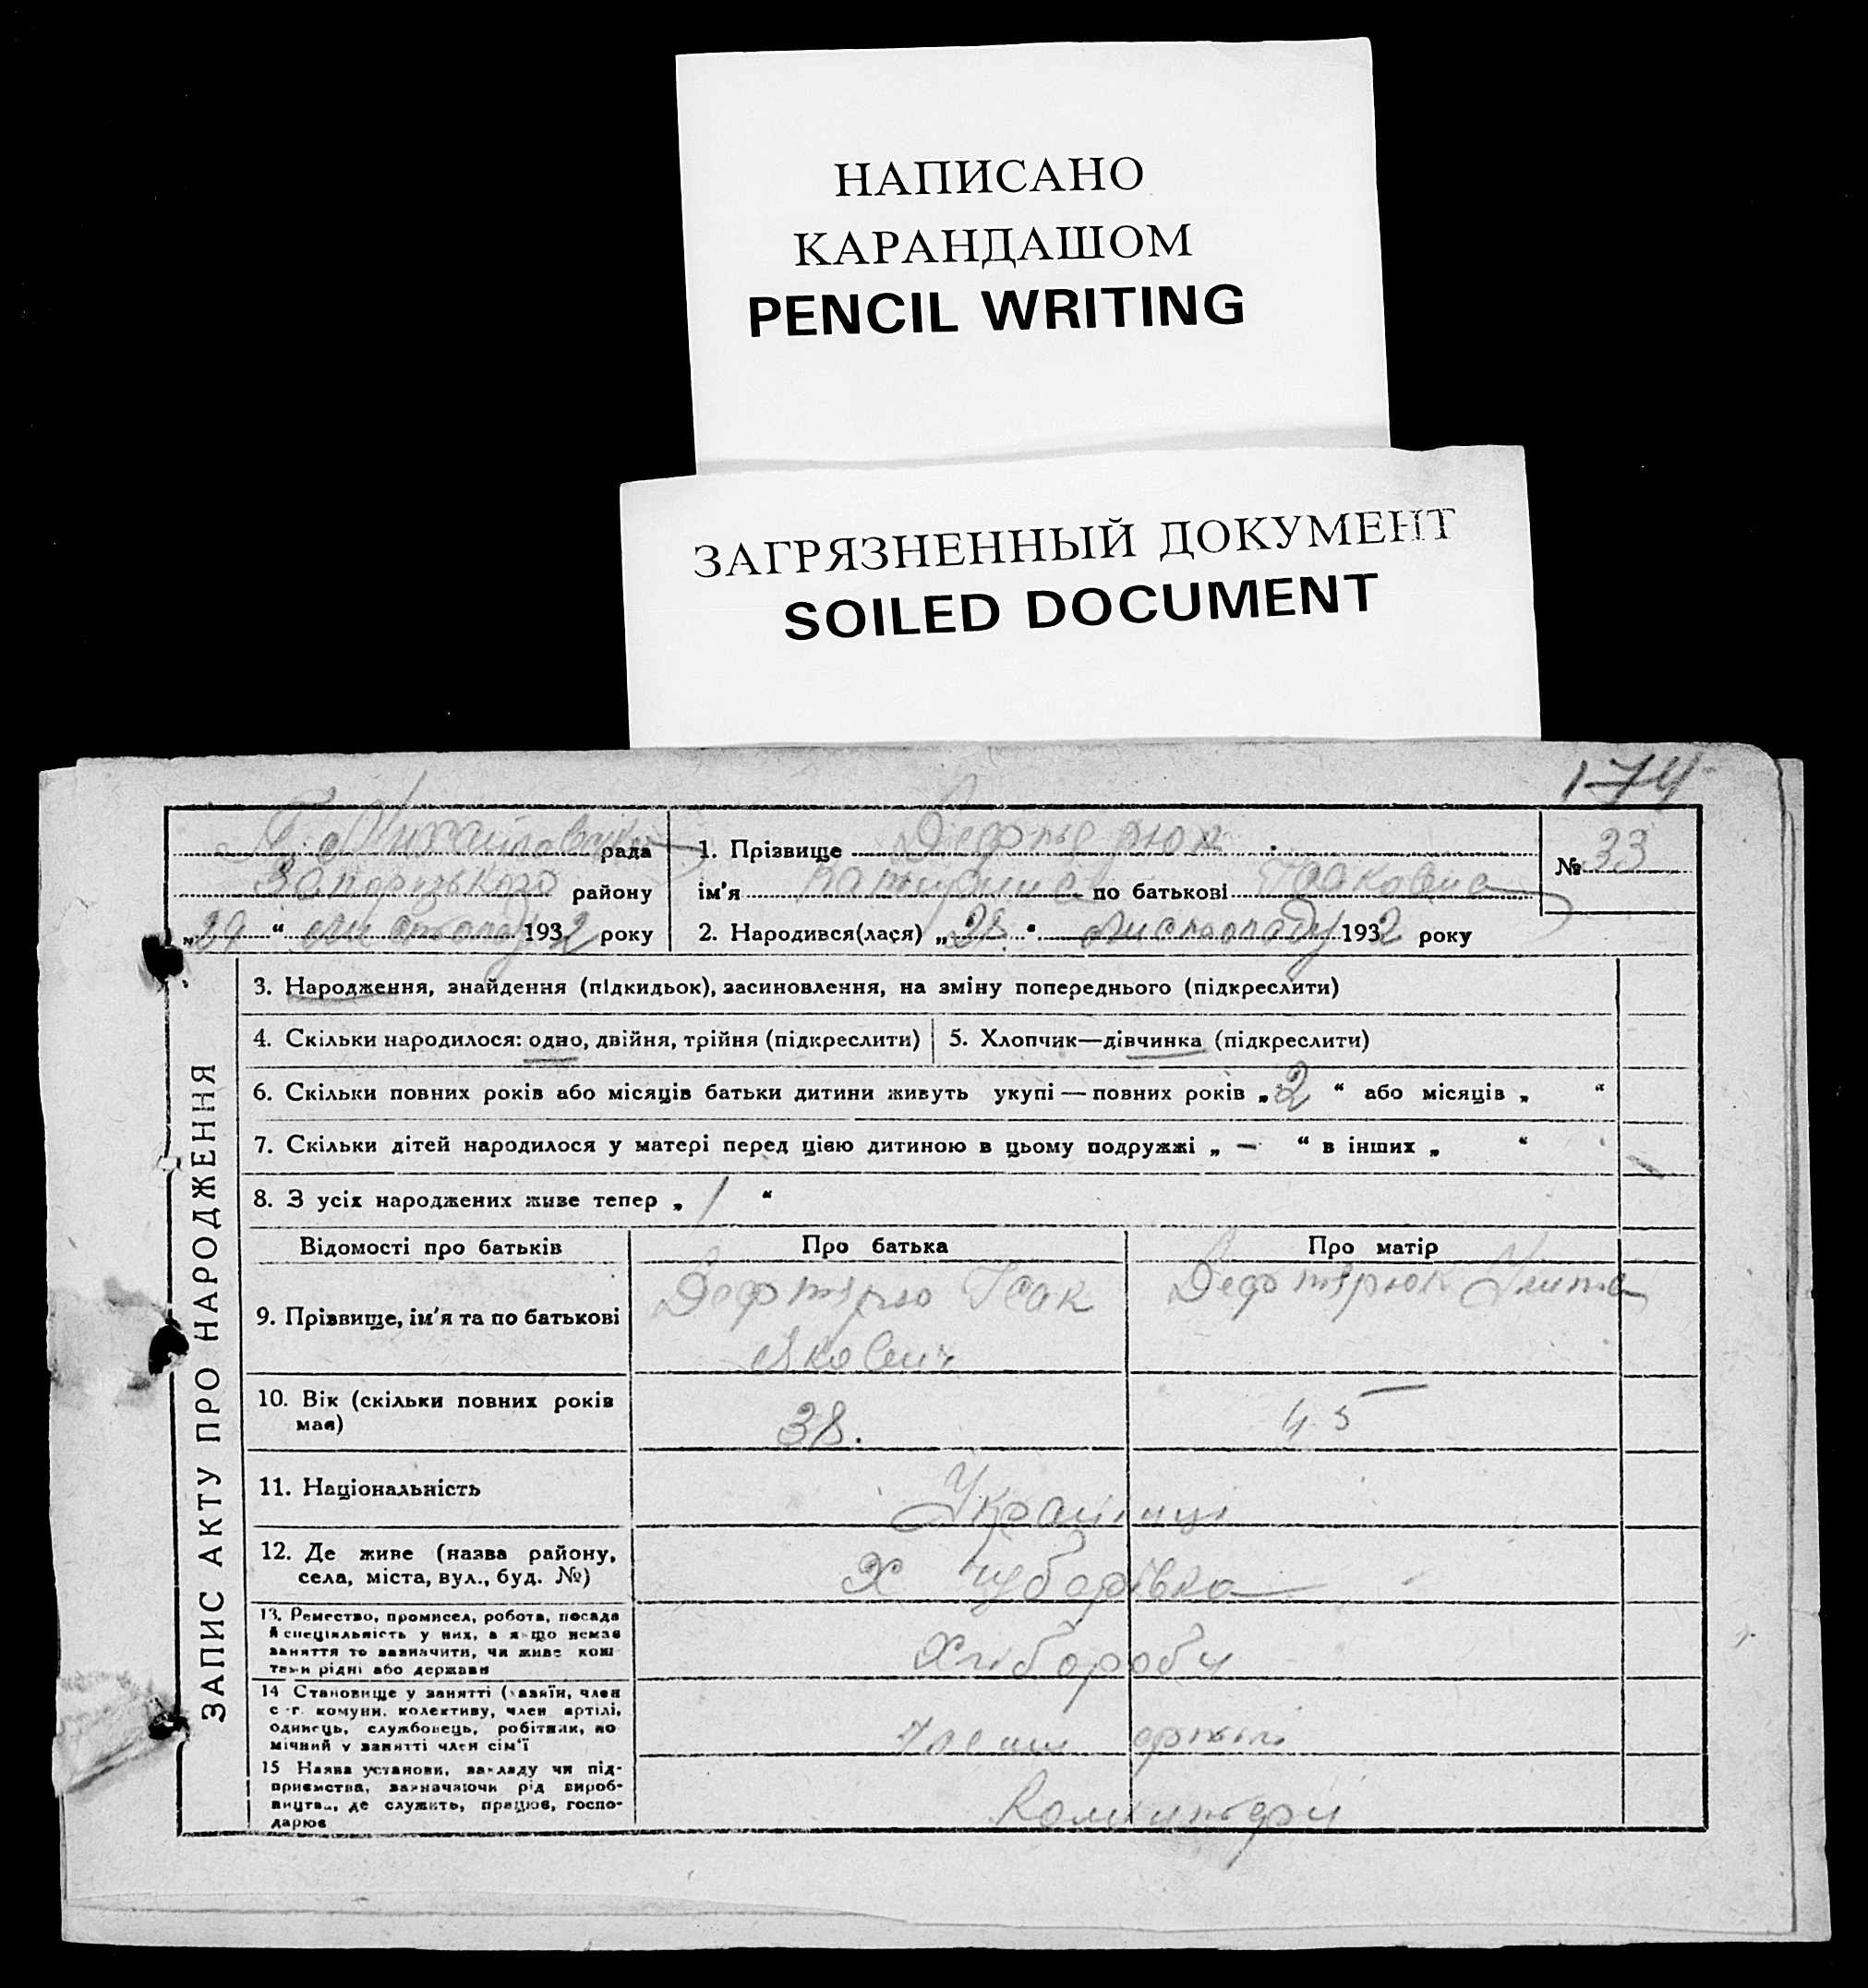 НАПИСАНО
КАРАНДАШОМ
PENCIL WRITING
ЗАГРЯЗНЕННЫЙ ДОКУМЕНТ
SOILED DOCUMENT
174
Михайловська рада
Запорізького району
„29“ листопаду 1932 року
1. Прізвище
ім'я по батькові Ісаковна
2. Народився(лася) „28“ листопаду 1932 року
№ 33
ЗАПИС АКТУ ПРО НАРОДЖЕННЯ
3. Народження, знайдення (підкидьок), засиновлення, на зміну попереднього (підкреслити)
4. Скільки народилося: одно, двійня, трійня (підкреслити)
5. Хлопчик—дівчинка (підкреслити)
6. Скільки повних років або місяців батьки дитини живуть укупі — повних років „2“ або місяців „ “
7. Скільки дітей народилося у матері перед цією дитиною в цьому подружжі „ – “ в інших „ “
8. З усіх народжених живе тепер „ 1 “
Відомості про батьків
Про батька
Про матір
9. Прізвище, ім'я та по батькові
Дефтярю Ісак
Якович
Дефтярюк Улита
10. Вік (скільки повних років
має)
38.
45
11. Національність
Українці
12. Де живе (назва району,
села, міста, вул., буд. №)
Х
13. Ремество, промисел, робота, посада
й спеціяльність у них, а якщо немає
заняття то зазначити, чи живе кош
тами рідні або держави
Хлібороби
14 Становище у занятті (хазяїн, член
с.-г. комуни, колективу, член артілі,
одинець, службовець, робітник, по
мічний у занятті член сім'ї
член артілі
15 Назва установи, закладу чи під-
приємства, зазначаючи рід вироб-
ництва, де служить, працює, госпо-
дарює